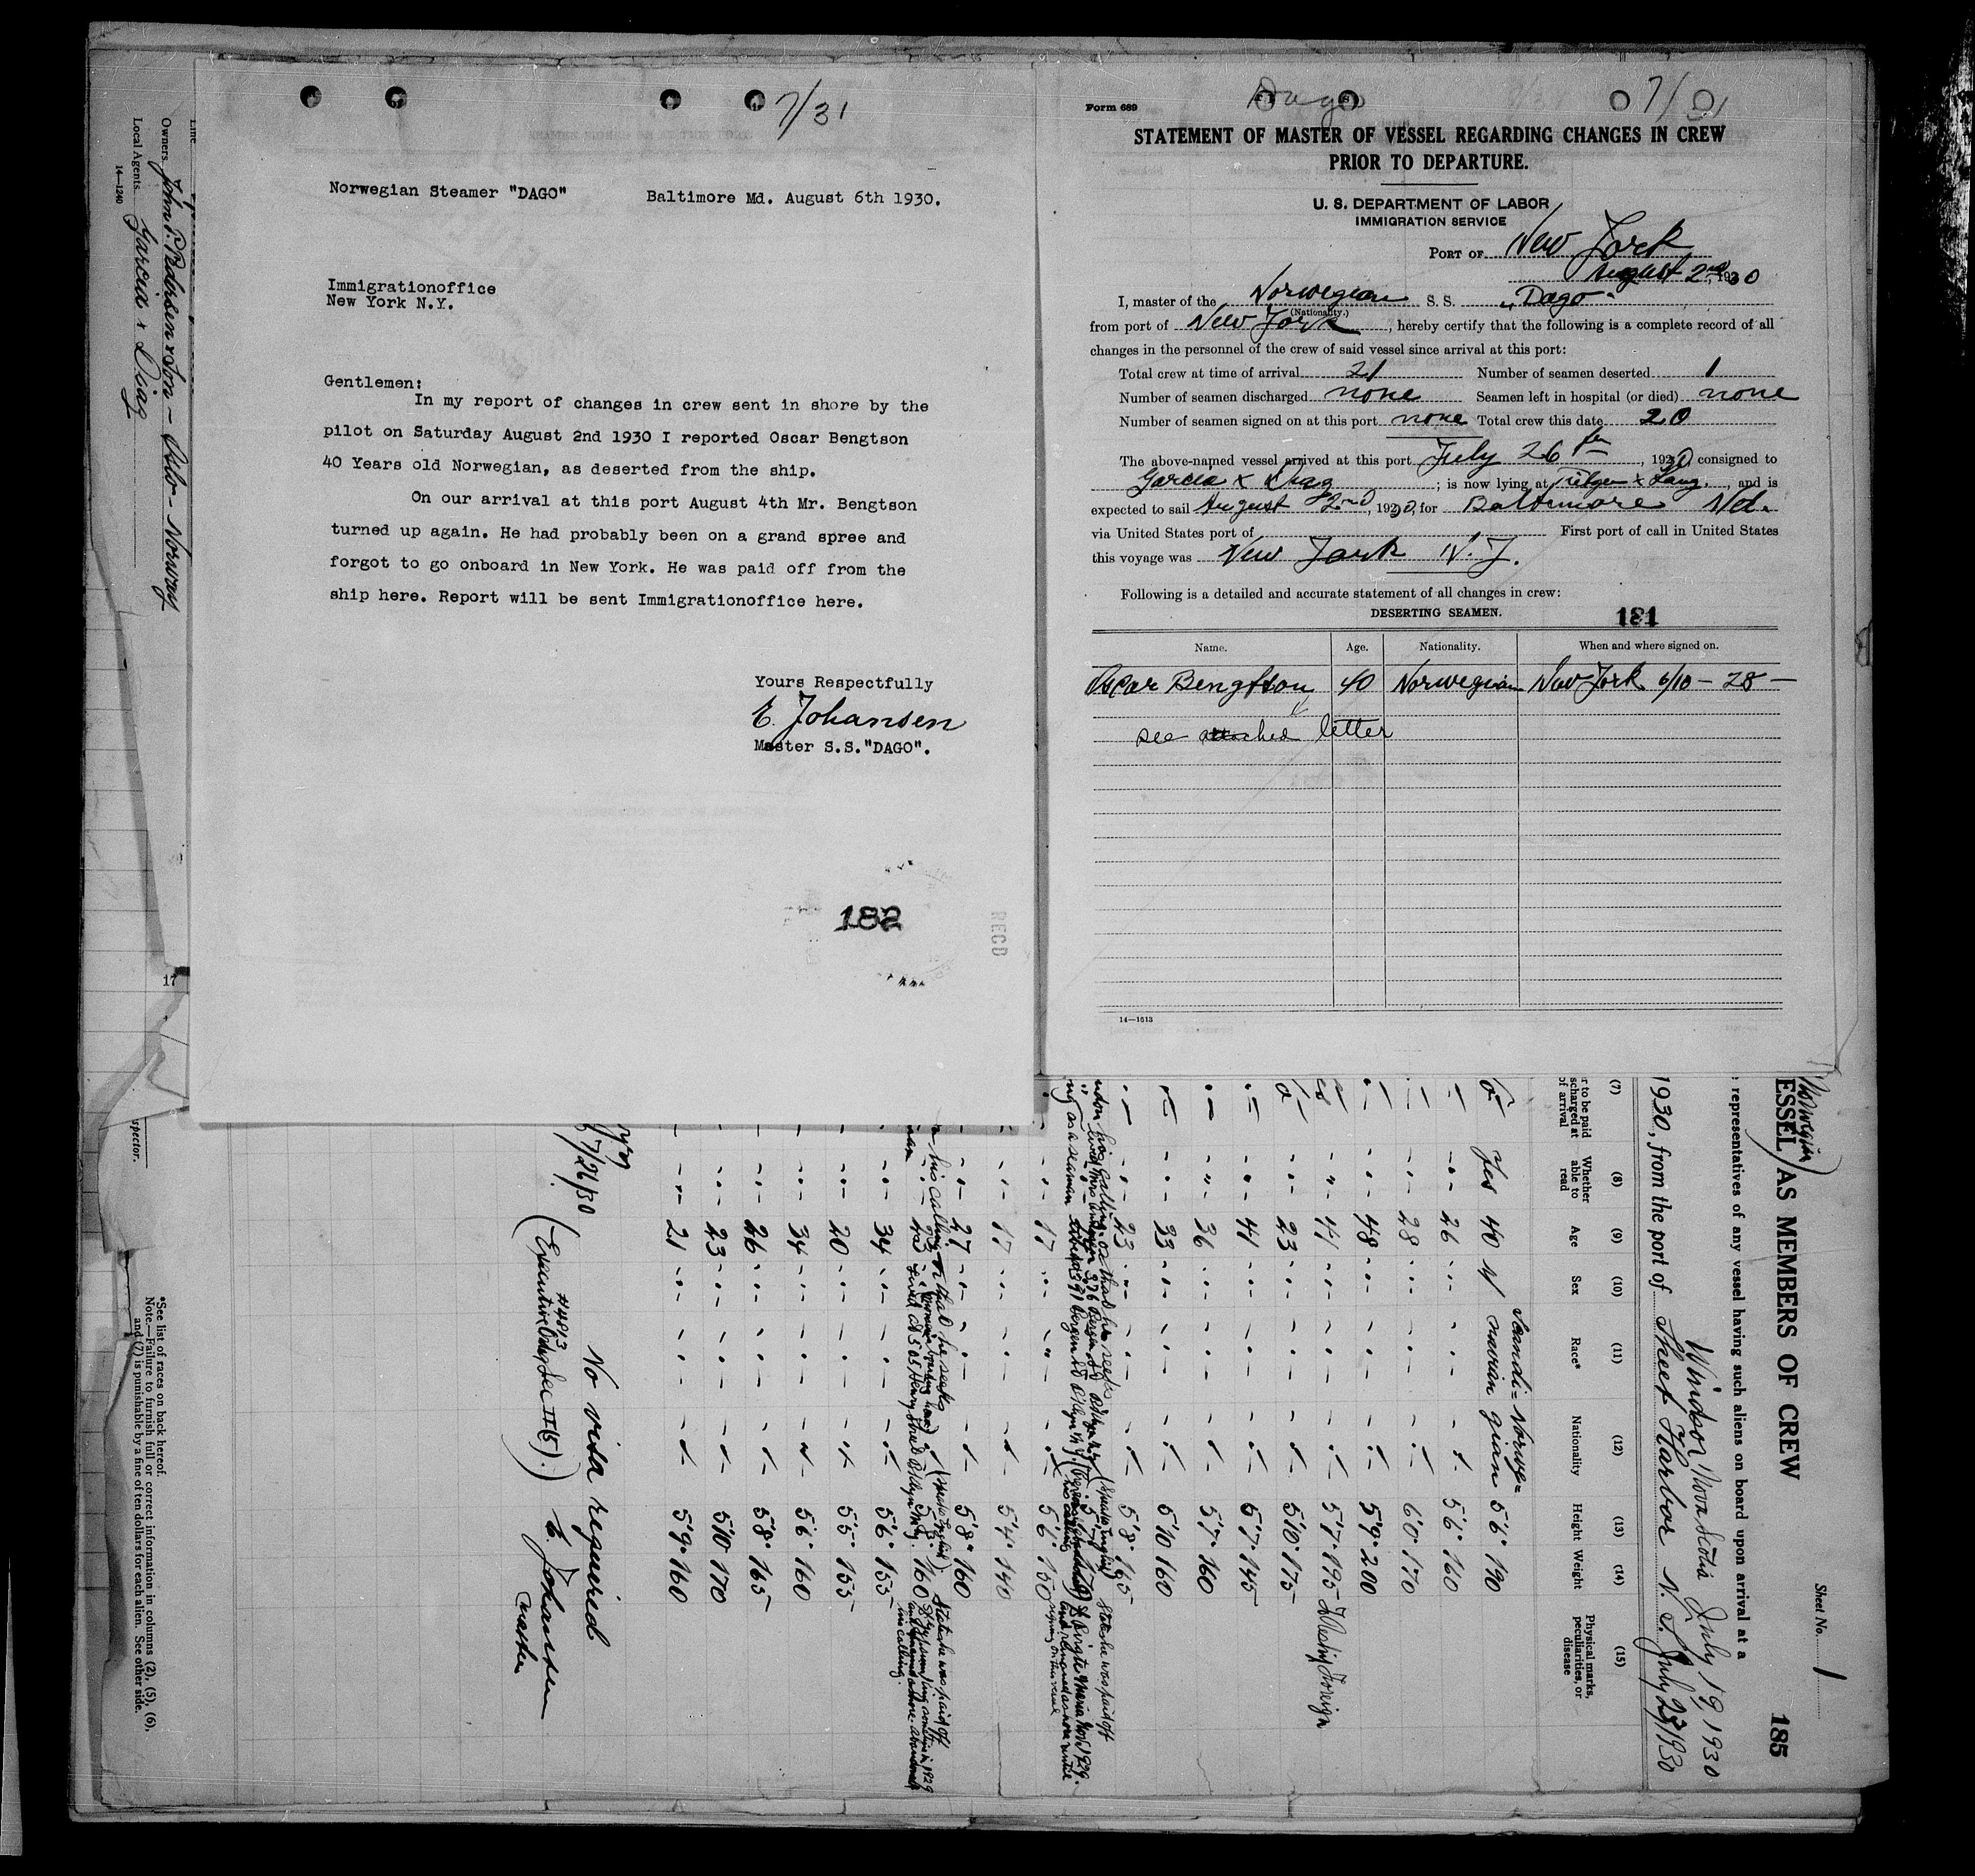 7/31
Norwegian Steamer "DAGO" Baltimore Md. August 6th 1930.
Immigrationoffice
New York N.Y.
Gentlemen:
In my report of changes in crew sent in shore by the
pilot on Saturday August 2nd 1930 I reported Oscar Bengtson
40 Years old Norwegian, as deserted from the ship.
On our arrival at this port August 4th Mr. Bengtson
turned up again. He had probably been on a grand spree and
forgot to go onboard in New York. He was paid off from the
ship here. Report will be sent Immigrationoffice here.
Yours Respectfully
E. Johansen
Master S.S."DAGO".
182
RECD
Form 689
Dago
7/31
STATEMENT OF MASTER OF VESSEL REGARDING CHANGES IN CREW
PRIOR TO DEPARTURE.
U. S. DEPARTMENT OF LABOR
IMMIGRATION SERVICE
PORT OF New York
August 2nd, 1930
I, master of the Norwegian S. S. "Dago"
(Nationality.)
from port of New York, hereby certify that the following is a complete record of all
changes in the personnel of the crew of said vessel since arrival at this port:
Total crew at time of arrival 21 Number of seamen deserted 1
Number of seamen discharged none Seamen left in hospital (or died) none
Number of seamen signed on at this port none Total crew this date 20
The above-named vessel arrived at this port July 26th, 1930, consigned to
Garcia & Diaz; is now lying at , and is
expected to sail August 2nd, 1930, for Baltimore Md.
via United States port of First port of call in United States
this voyage was New York N.Y.
Following is a detailed and accurate statement of all changes in crew:
DESERTING SEAMEN.
181
Name. Age. Nationality. When and where signed on.
Oscar Bengtson 40 Norwegian New York 6/10 - 28 -
see attached letter
14—1613
Line
Owners John P. Pedersen & Son - Oslo - Norway
Local Agents Garcia & Diaz
14—1240
17
Sheet No. 1
185
Norwegian
ESSEL) AS MEMBERS OF CREW
representatives of any vessel having such aliens on board upon arrival at a
Windsor Nova Scotia July 19, 1930
1930, from the port of Sheet Harbor N.S. July 23/1930
(7) (8) (9) (10) (11) (12) (13) (14) (15)
r to be paid
scharged at
of arrival
Whether
able to
read
Age
Sex
Race*
Nationality
Height
Weight
Physical marks,
peculiarities, or
disease
Yes 40 M Scandi= navian Norwe= gian 5'6" 190
26 5'6" 160
28 6'0" 170
48 5'9" 200
41 5'7" 195
23 5'10" 175
41 5'7" 145
36 5'7" 160
33 5'10 160
23 5'8" 165
17 5'6" 150
17 5'4" 140
27 5'8" 160
34 5'6" 155
20 5'5" 155
34 5'6" 160
26 5'8" 165
23 5'10 170
21 5'9" 160
No visa required
7/26/30
(Executive Order #4813 Sec II (5).)
E. Johansen
Master
*See list of races on back hereof.
Note.—Failure to furnish full or correct information in columns (2), (5), (6),
and (7) is punishable by a fine of ten dollars for each alien. See other side.
spector.